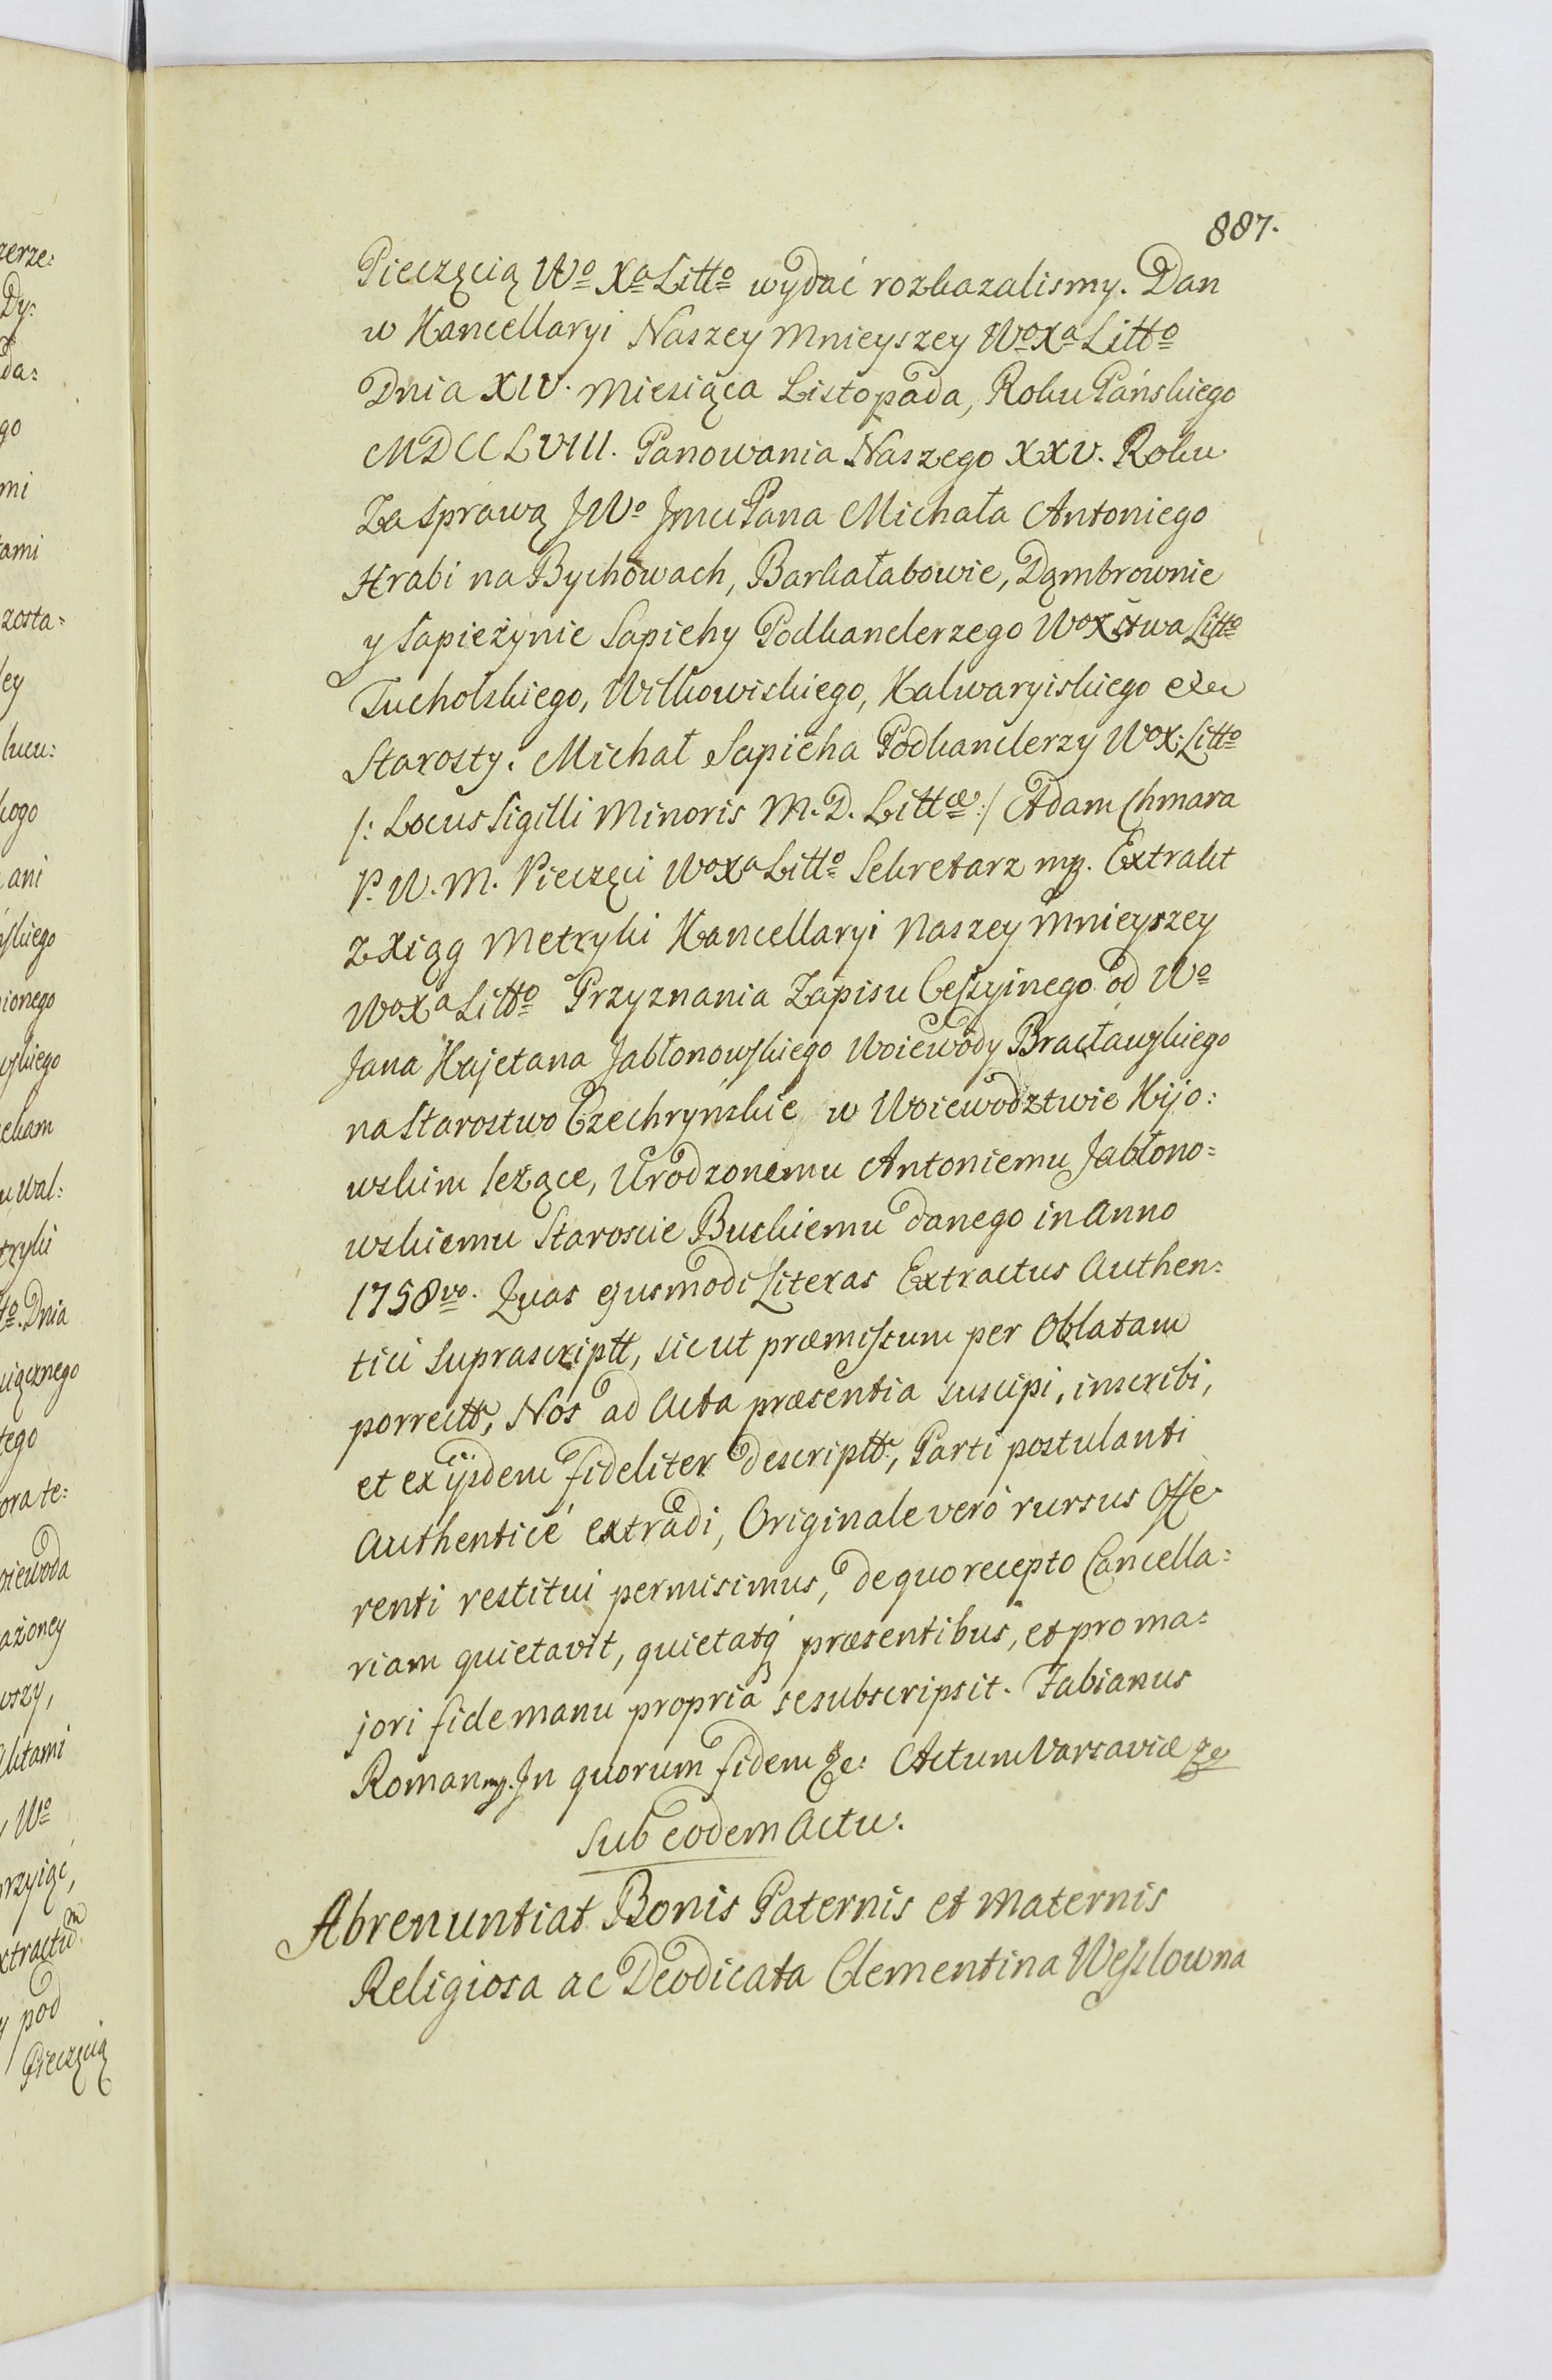 887.
Pieczęcią Wo Xa Litto wydać rozkazalismy. Dan
w Kancellaryi Naszey Mnieyszey Wo Xa Litto
Dnia XIV. Miesiąca Listopada, Roku Pańskiego
MDCCLVIII. Panowania Naszego XXV. Roku
Za sprawą JWo Jmci Pana Michała Antoniego
Hrabi na Bychowach, Barkałabowie, Dąmbrownie
y Sapieżynie Sapiehy Podkanclerzego WoXstwa Litto
Tucholskiego, Wilkowiskiego, Kalwaryiskiego etc
Starosty. Michał Sapieha Podkanclerzy WoX: Litto
/: Locus Sigilli Minoris M. D. Littæ :/ Adam Chmara
P. W. M. Pieczęci WoXa Litto Sekretarz mp. Extrakt
z Xiąg Metryki Kancellaryi Naszey Mnieyszey
WoXa Litto Przyznania Zapisu Cessyinego od Wo
Jana Kajetana Jabłonowskiego Woiewody Bracławskiego
na Starostwo Czechryńskie w Woiewodztwie Kijo:
wskim leżące, Urodzonemu Antoniemu Jabłono:
wskiemu Staroscie Buskiemu danego in Anno
1758vo. Quas ejusmodi Literas Extractus Authen:
tici suprascriptt, sicut præmissum per Oblatam
porrectt, Nos ad Acta præsentia suscipi, inscribi,
et ex ijsdem fideliter descriptt, Parti postulanti
Authenticé extradi, Originale veró rursus Offe:
renti restitui permisimus, de quo recepto Cancella:
riam quietavit, quietatq præsentibus, et pro ma:
jori fide manu propriâ se subscripsit. Fabianus
Roman mp. In quorum fidem &c: Actum Varsaviæ &c
Sub eodem Actu.
Abrenuntiat Bonis Paternis et Maternis
Religiosa ac Deodicata Clementina Wesslowna
zerze:
Dy:
da:
go
mi
tami
zosta:
ley
kogo
ani
skiego
ionego
skiego
wal:
Dnia
tego
ora te:
oiewoda
ażoney
wszy,
ktami
Wo
rzyiąć,
xtractum
y pod
Pieczęcią